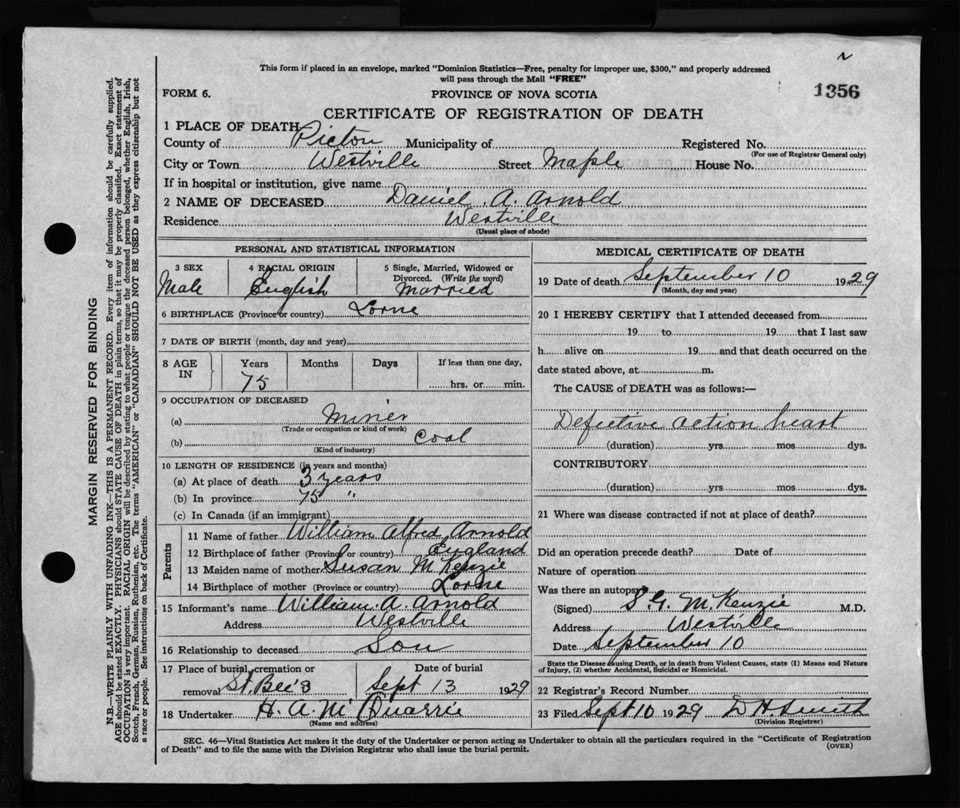 This form if placed in an envelope, marked "Dominion Statistics—Free, penalty for improper use, $300," and properly addressed
will pass through the Mail "FREE"
FORM 6.
PROVINCE OF NOVA SCOTIA
1356
CERTIFICATE OF REGISTRATION OF DEATH
1 PLACE OF DEATH
County of Pictou Municipality of Registered No.
(For use of Registrar General only)
City or Town Westville Street Maple House No.
If in hospital or institution, give name
2 NAME OF DECEASED Daniel A. Arnold
Residence Westville
(Usual place of abode)
PERSONAL AND STATISTICAL INFORMATION
3 SEX
Male
4 RACIAL ORIGIN
English
5 Single, Married, Widowed or
Divorced. (Write the word)
Married
6 BIRTHPLACE (Province or country) Lorne
7 DATE OF BIRTH (month, day and year)
8 AGE IN
Years 75 Months Days If less than one day,
hrs. or min.
9 OCCUPATION OF DECEASED
(a) Miner
(Trade or occupation or kind of work)
(b) Coal
(Kind of industry)
10 LENGTH OF RESIDENCE (in years and months)
(a) At place of death 3 years
(b) In province 75 "
(c) In Canada (if an immigrant)
Parents
11 Name of father William Alfred Arnold
12 Birthplace of father (Province or country) England
13 Maiden name of mother Susan McKenzie
14 Birthplace of mother (Province or country) Lorne
15 Informant's name William. A. Arnold
Address Westville
16 Relationship to deceased Son
17 Place of burial, cremation or
removal St. Bee's
Date of burial
Sept 13 1929
18 Undertaker H. A. McQuarrie
(Name and address)
MEDICAL CERTIFICATE OF DEATH
19 Date of death September 10 1929
(Month, day and year)
20 I HEREBY CERTIFY that I attended deceased from
19 to 19 that I last saw
h alive on 19 and that death occurred on the
date stated above, at m.
The CAUSE of DEATH was as follows:—
Defective action heart
(duration) yrs mos dys.
CONTRIBUTORY
(duration) yrs. mos dys.
21 Where was disease contracted if not at place of death?
Did an operation precede death? Date of
Nature of operation
Was there an autopsy
(Signed) S. G. McKenzie M.D.
Address Westville
Date September 10
State the Disease causing Death, or in death from Violent Causes, state (1) Means and Nature
of Injury, (2) whether Accidental, Suicidal or Homicidal.
22 Registrar's Record Number
23 Filed Sept 10 1929 D H Smith
(Division Registrar)
SEC. 46—Vital Statistics Act makes it the duty of the Undertaker or person acting as Undertaker to obtain all the particulars required in the "Certificate of Registration
of Death" and to file the same with the Division Registrar who shall issue the burial permit.
(OVER)
MARGIN RESERVED FOR BINDING
N.B.—WRITE PLAINLY WITH UNFADING INK—THIS IS A PERMANENT RECORD. Every item of information should be carefully supplied.
AGE should be stated EXACTLY. PHYSICIANS should STATE CAUSE OF DEATH in plain terms, so that it may be properly classified. Exact statement of
OCCUPATION is very important. RACIAL ORIGIN will be described by stating to what people or tongue the deceased person belonged, whether English, Irish,
Scotch, French, German, Russian, Ruthenian, etc. The terms "AMERICAN" or "CANADIAN" SHOULD NOT BE USED as they express citizenship but not
a race or people. See instructions on back of Certificate.